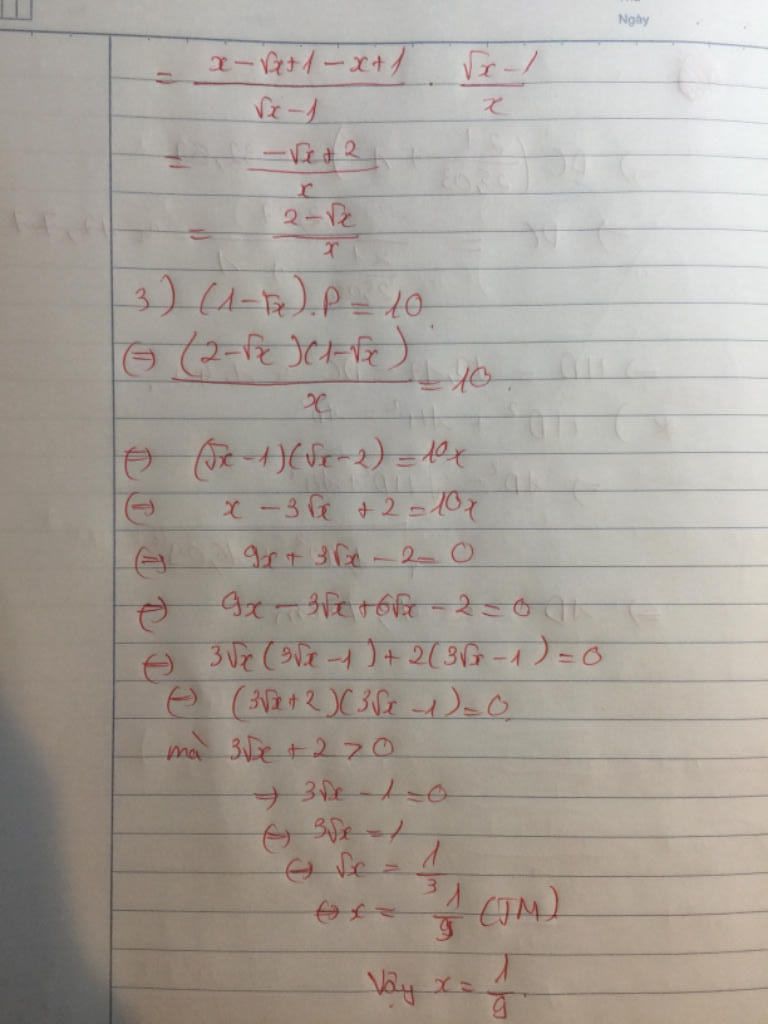 Ngày
= \frac{x - √x + 1 - x + 1}{√x - 1} . \frac{√x - 1}{x}
= \frac{-√x + 2}{x}
= \frac{2 - √x}{x}
3) (1 - √x).P = 10
⇔ \frac{(2 - √x)(1 - √x)}{x} = 10
⇔ (√x - 1)(√x - 2) = 10x
⇔ x - 3√x + 2 = 10x
⇔ 9x + 3√x - 2 = 0
⇔ 9x - 3√x + 6√x - 2 = 0
⇔ 3√x(3√x - 1) + 2(3√x - 1) = 0
⇔ (3√x + 2)(3√x - 1) = 0
mà 3√x + 2 > 0
⇒ 3√x - 1 = 0
⇔ 3√x = 1
⇔ √x = \frac{1}{3}
⇔ x = \frac{1}{9} (TM)
Vậy x = \frac{1}{9}.